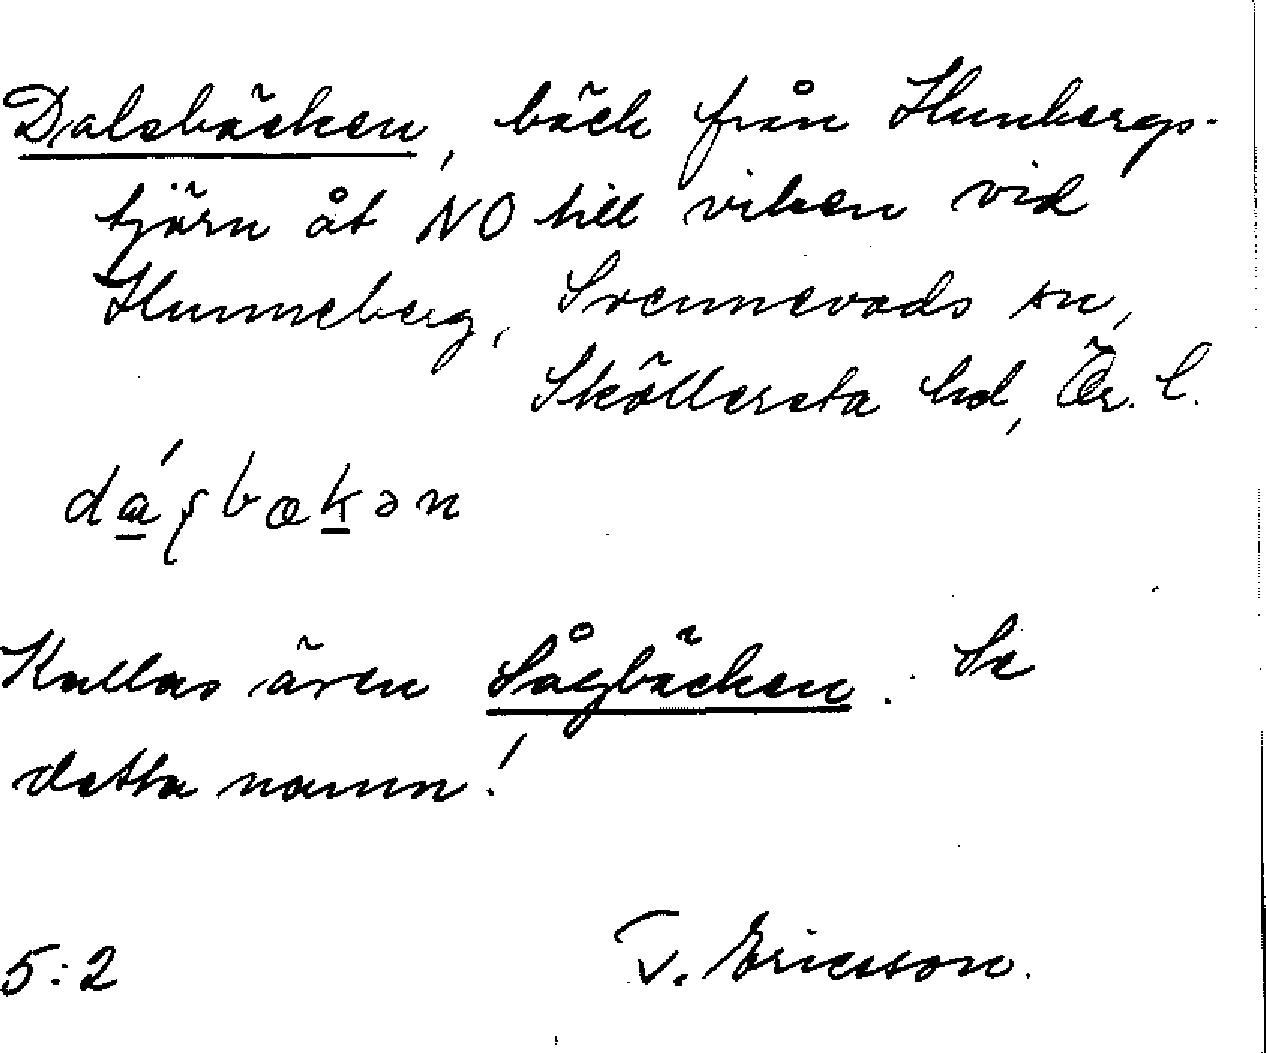 Dalsbäcken, bäck från Hunbergs-
tjärn åt NO till viken vid
Hunneberg, Svennevads sn,
Sköllersta hd, Ör. l.
Kallas även Sågbäcken. Se
detta namn!
5:2 T. Ericsson.